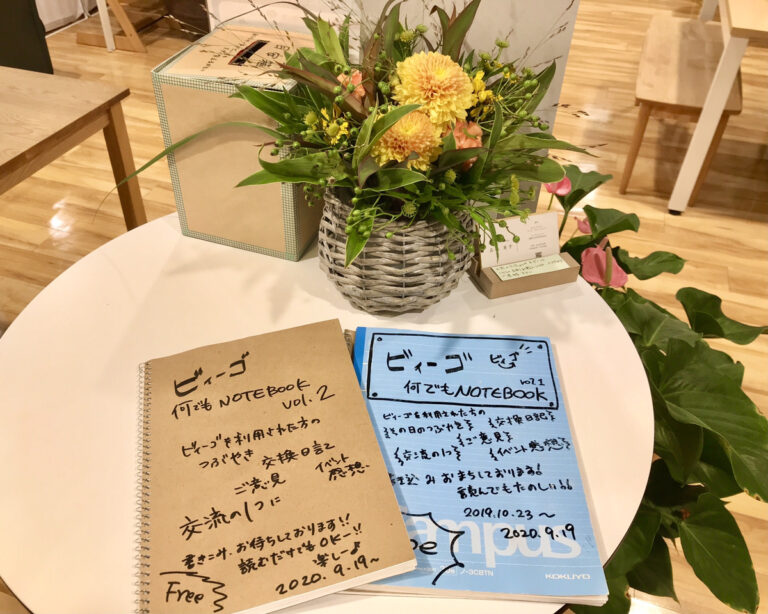 ビィーゴ
何でも NOTEBOOK
vol. 2
ビィーゴを利用された方の
つぶやき 交換日記
ご意見 イベント
感想..
交流の1つに
書きこみ、お待ちしております!!
読むだけでもOKー!!
楽しー♪
Free
2020. 9.19〜
ビィーゴ ビィーゴ
vol.1
何でも NOTEBOOK
ビィーゴを利用された方の
その日のつぶやき 交換日記
ご意見
交流の1つ イベント感想
込み おまちしております!
読んでもたのしい!!
2019.10.23〜
2020. 9.19
mpus
KOKUYO
ノ-3CBTN